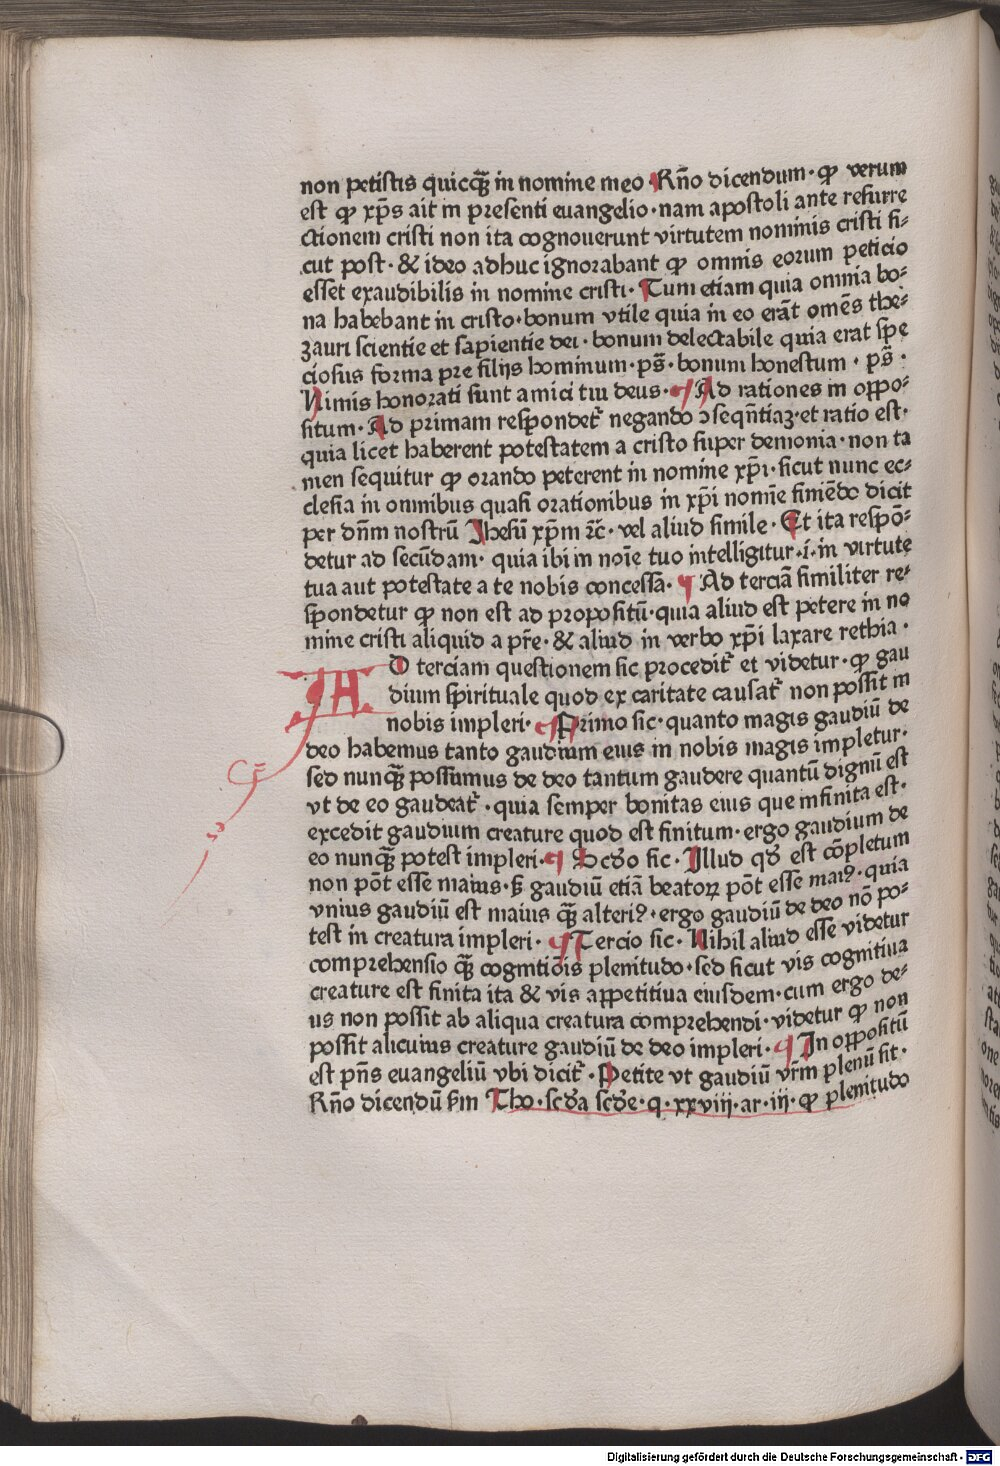 non petistis quicq̄ꝫ in nomine meo Rn̄o dicendum· ꝙ verum
est ꝙ xp̄s ait in presenti euangelio·nam apostoli ante resurre
ctionem cristi non ita cognouerunt virtutem nominis cristi si⸗
cut post· & ideo adhuc ignorabant ꝙ omnis eorum peticio
esset exaudibilis in nomine cristi· Tum etiam quia omnia bo⸗
na habebant in cristo·bonum vtile quia in eo erāt omēs the⸗
zauri scientie et sapientie dei· bonum delectabile quia erat spe
ciosus forma pre filijs hominum·ps̄· bonum honestum· ps̄·
Nimis honorati sunt amici tui deus· ¶ Ad rationes in oppo⸗
situm· Ad primam respondet᷑ negando ↄseqn̄tiaꝫ·et ratio est·
quia licet haberent potestatem a cristo super demonia·non ta
men sequitur ꝙ orando peterent in nomine xp̄i·sicut nunc ec⸗
clesia in omnibus quasi orationibus in xp̄i nomīe finiēdo dicit
per dn̄m nostrū Jhesū xp̄m ⁊c̄· vel aliud simile· Et ita respō⸗
detur ad secūdam· quia ibi in noīe tuo intelligitur·i·in virtute
tua aut potestate a te nobis concessa· ¶ Ad terciā similiter re⸗
spondetur ꝙ non est ad propositū·quia aliud est petere in no
mine cristi aliquid a pr̄e·& aliud in verbo xp̄i laxare rethia·
AD terciam questionem sic procedit᷑ et videtur·ꝙ gau
dium spirituale quod ex caritate causat᷑ non possit in
nobis impleri· ¶ Primo sic·quanto magis gaudiū de
deo habemus tanto gaudium eius in nobis magis impletur·
sed nunq̄ꝫ possumus de deo tantum gaudere quantū dignū est
vt de eo gaudeat᷑·quia semper bonitas eius que infinita est·
excedit gaudium creature quod est finitum·ergo gaudium de
eo nunq̄ꝫ potest impleri· ¶ Scd̄o sic· Illud qd̄ est cōpletum
non pōt esse maius·s̄ gaudiū etiā beatoꝝ pōt esse mai⁹·quia
vnius gaudiū est maius q̄ꝫ alteri⁹·ergo gaudiū de deo nō po⸗
test in creatura impleri· ¶ Tercio sic· Nihil aliud esse videtur
comprehensio q̄ꝫ cognitiōis plenitudo·sed sicut vis cognitiua
creature est finita ita & vis appetitiua eiusdem·cum ergo de⸗
us non possit ab aliqua creatura comprehendi·videtur ꝙ non
possit alicuius creature gaudiū de deo impleri· ¶ In oppositū
est pn̄s euangeliū vbi dicit᷑· Petite vt gaudiū vr̄m plenū sit·
Rn̄o dicendū s̄m Tho·scd̄a scd̄e·q·xxviij·ar·iij·ꝙ plenitudo
Digitalisierung gefördert durch die Deutsche Forschungsgemeinschaft - DFG